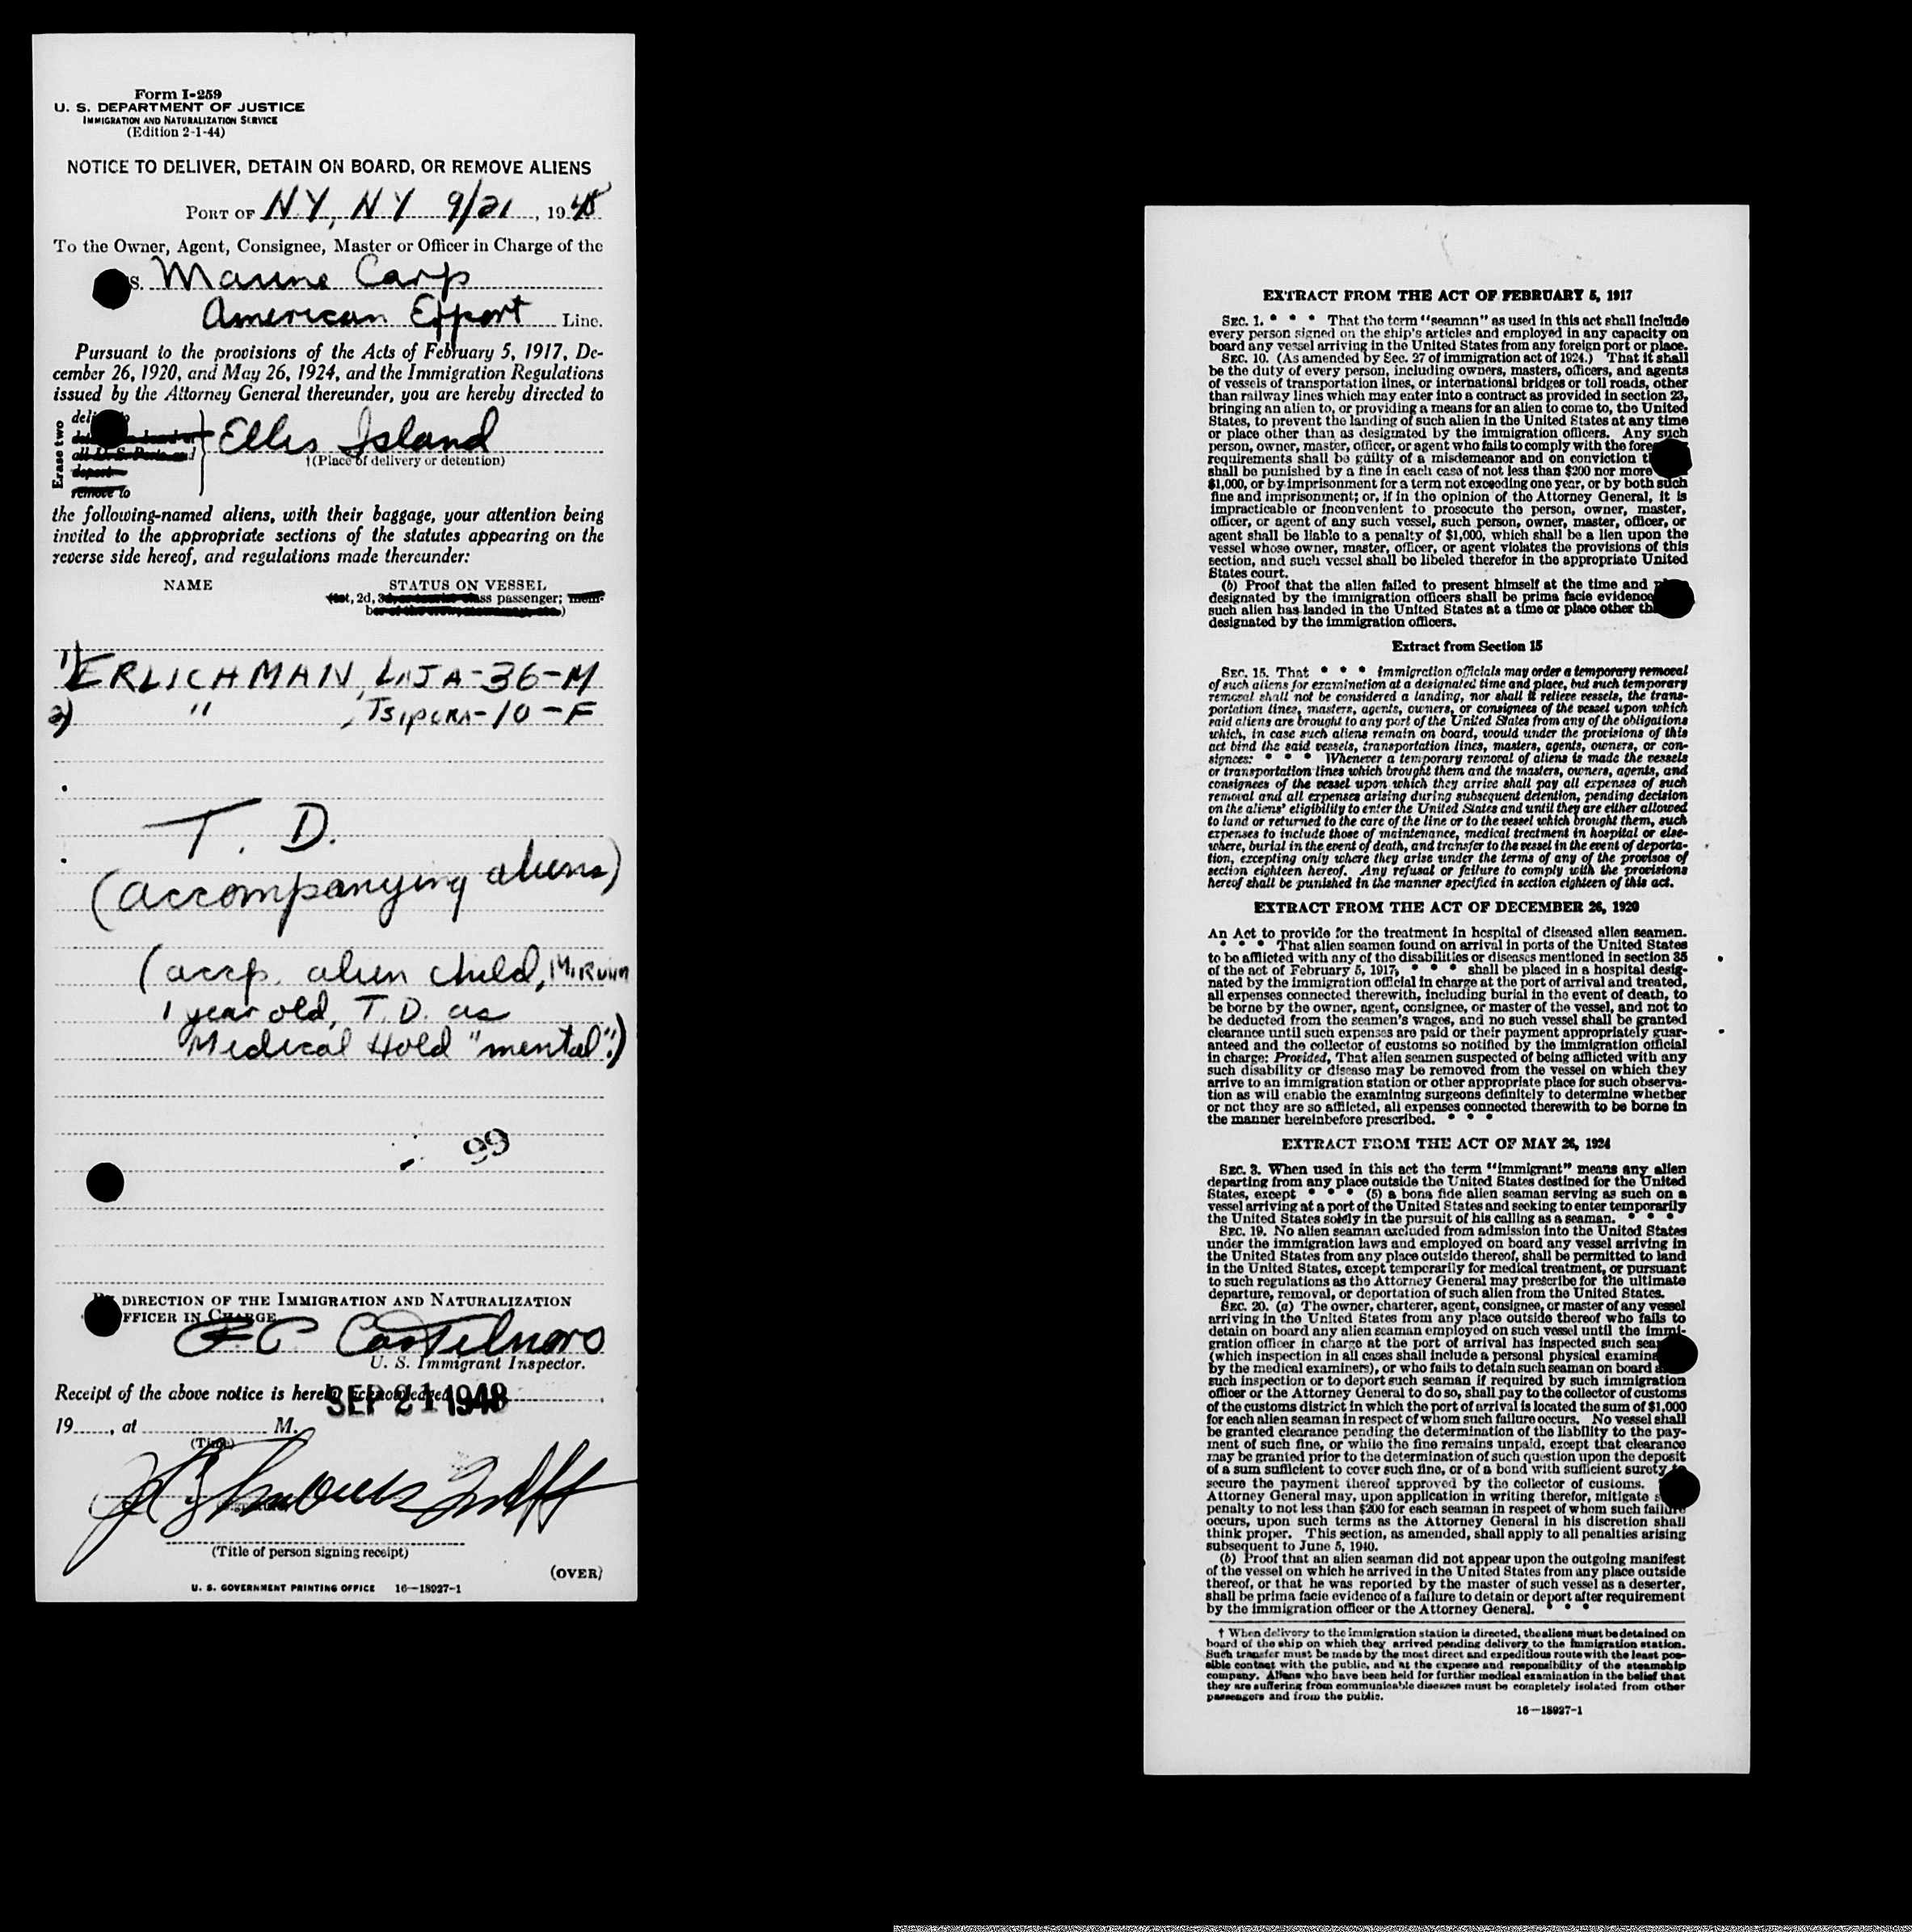 Form I-259
U. S. DEPARTMENT OF JUSTICE
IMMIGRATION AND NATURALIZATION SERVICE
(Edition 2-1-44)
NOTICE TO DELIVER, DETAIN ON BOARD, OR REMOVE ALIENS
PORT OF NY, NY 9/21, 1948
To the Owner, Agent, Consignee, Master or Officer in Charge of the
S. Marine Carp
American Export Line.
Pursuant to the provisions of the Acts of February 5, 1917, De-
cember 26, 1920, and May 26, 1924, and the Immigration Regulations
issued by the Attorney General thereunder, you are hereby directed to
Erase two
Ellis Island
†(Place of delivery or detention)
remove to
the following-named aliens, with their baggage, your attention being
invited to the appropriate sections of the statutes appearing on the
reverse side hereof, and regulations made thereunder:
NAME STATUS ON VESSEL
2d, passenger;
1) ERLICHMAN, LAJA-36-M
2) " , TSIPORA-10-F
T. D.
(accompanying aliens)
(accp. alien child,
1 year old, T. D. as
Medical Hold "mental".)
99
DIRECTION OF THE IMMIGRATION AND NATURALIZATION
OFFICER IN CHARGE
U. S. Immigrant Inspector.
Receipt of the above notice is hereby acknowledged
SEP 21 1948
19......, at M.
(Time)
(Title of person signing receipt)
(OVER)
U. S. GOVERNMENT PRINTING OFFICE 16—18927-1
EXTRACT FROM THE ACT OF FEBRUARY 5, 1917
SEC. 1. * * * That the term "seaman" as used in this act shall include
every person signed on the ship's articles and employed in any capacity on
board any vessel arriving in the United States from any foreign port or place.
SEC. 10. (As amended by Sec. 27 of immigration act of 1924.) That it shall
be the duty of every person, including owners, masters, officers, and agents
of vessels of transportation lines, or international bridges or toll roads, other
than railway lines which may enter into a contract as provided in section 23,
bringing an alien to, or providing a means for an alien to come to, the United
States, to prevent the landing of such alien in the United States at any time
or place other than as designated by the immigration officers. Any such
person, owner, master, officer, or agent who fails to comply with the fore
requirements shall be guilty of a misdemeanor and on conviction
shall be punished by a fine in each case of not less than $200 nor more
$1,000, or by imprisonment for a term not exceeding one year, or by both such
fine and imprisonment; or, if in the opinion of the Attorney General, it is
impracticable or inconvenient to prosecute the person, owner, master,
officer, or agent of any such vessel, such person, owner, master, officer, or
agent shall be liable to a penalty of $1,000, which shall be a lien upon the
vessel whose owner, master, officer, or agent violates the provisions of this
section, and such vessel shall be libeled therefor in the appropriate United
States court.
(b) Proof that the alien failed to present himself at the time and
designated by the immigration officers shall be prima facie evidence
such alien has landed in the United States at a time or place other
designated by the immigration officers.
Extract from Section 15
SEC. 15. That * * * immigration officials may order a temporary removal
of such aliens for examination at a designated time and place, but such temporary
removal shall not be considered a landing, nor shall it relieve vessels, the trans-
portation lines, masters, agents, owners, or consignees of the vessel upon which
said aliens are brought to any port of the United States from any of the obligations
which, in case such aliens remain on board, would under the provisions of this
act bind the said vessels, transportation lines, masters, agents, owners, or con-
signees: * * * Whenever a temporary removal of aliens is made the vessels
or transportation lines which brought them and the masters, owners, agents, and
consignees of the vessel upon which they arrive shall pay all expenses of such
removal and all expenses arising during subsequent detention, pending decision
on the aliens' eligibility to enter the United States and until they are either allowed
to land or returned to the care of the line or to the vessel which brought them, such
expenses to include those of maintenance, medical treatment in hospital or else-
where, burial in the event of death, and transfer to the vessel in the event of deporta-
tion, excepting only where they arise under the terms of any of the provisos of
section eighteen hereof. Any refusal or failure to comply with the provisions
hereof shall be punished in the manner specified in section eighteen of this act.
EXTRACT FROM THE ACT OF DECEMBER 26, 1920
An Act to provide for the treatment in hospital of diseased alien seamen.
* * * That alien seamen found on arrival in ports of the United States
to be afflicted with any of the disabilities or diseases mentioned in section 35
of the act of February 5, 1917, * * * shall be placed in a hospital desig-
nated by the immigration official in charge at the port of arrival and treated,
all expenses connected therewith, including burial in the event of death, to
be borne by the owner, agent, consignee, or master of the vessel, and not to
be deducted from the seamen's wages, and no such vessel shall be granted
clearance until such expenses are paid or their payment appropriately guar-
anteed and the collector of customs so notified by the immigration official
in charge: Provided, That alien seamen suspected of being afflicted with any
such disability or disease may be removed from the vessel on which they
arrive to an immigration station or other appropriate place for such observa-
tion as will enable the examining surgeons definitely to determine whether
or not they are so afflicted, all expenses connected therewith to be borne in
the manner hereinbefore prescribed. * * *
EXTRACT FROM THE ACT OF MAY 26, 1924
SEC. 3. When used in this act the term "immigrant" means any alien
departing from any place outside the United States destined for the United
States, except * * * (5) a bona fide alien seaman serving as such on a
vessel arriving at a port of the United States and seeking to enter temporarily
the United States solely in the pursuit of his calling as a seaman. * * *
SEC. 19. No alien seaman excluded from admission into the United States
under the immigration laws and employed on board any vessel arriving in
the United States from any place outside thereof, shall be permitted to land
in the United States, except temporarily for medical treatment, or pursuant
to such regulations as the Attorney General may prescribe for the ultimate
departure, removal, or deportation of such alien from the United States.
SEC. 20. (a) The owner, charterer, agent, consignee, or master of any vessel
arriving in the United States from any place outside thereof who fails to
detain on board any alien seaman employed on such vessel until the immi-
gration officer in charge at the port of arrival has inspected such
(which inspection in all cases shall include a personal physical
by the medical examiners), or who fails to detain such seaman on board
such inspection or to deport such seaman if required by such immigration
officer or the Attorney General to do so, shall pay to the collector of customs
of the customs district in which the port of arrival is located the sum of $1,000
for each alien seaman in respect of whom such failure occurs. No vessel shall
be granted clearance pending the determination of the liability to the pay-
ment of such fine, or while the fine remains unpaid, except that clearance
may be granted prior to the determination of such question upon the deposit
of a sum sufficient to cover such fine, or of a bond with sufficient surety to
secure the payment thereof approved by the collector of customs.
Attorney General may, upon application in writing therefor, mitigate
penalty to not less than $200 for each seaman in respect of whom such failure
occurs, upon such terms as the Attorney General in his discretion shall
think proper. This section, as amended, shall apply to all penalties arising
subsequent to June 5, 1940.
(b) Proof that an alien seaman did not appear upon the outgoing manifest
of the vessel on which he arrived in the United States from any place outside
thereof, or that he was reported by the master of such vessel as a deserter,
shall be prima facie evidence of a failure to detain or deport after requirement
by the immigration officer or the Attorney General. * * *
† When delivery to the immigration station is directed, the aliens must be detained on
board of the ship on which they arrived pending delivery to the immigration station.
Such transfer must be made by the most direct and expeditious route with the least pos-
sible contact with the public, and at the expense and responsibility of the steamship
company. Aliens who have been held for further medical examination in the belief that
they are suffering from communicable diseases must be completely isolated from other
passengers and from the public.
16—18927-1